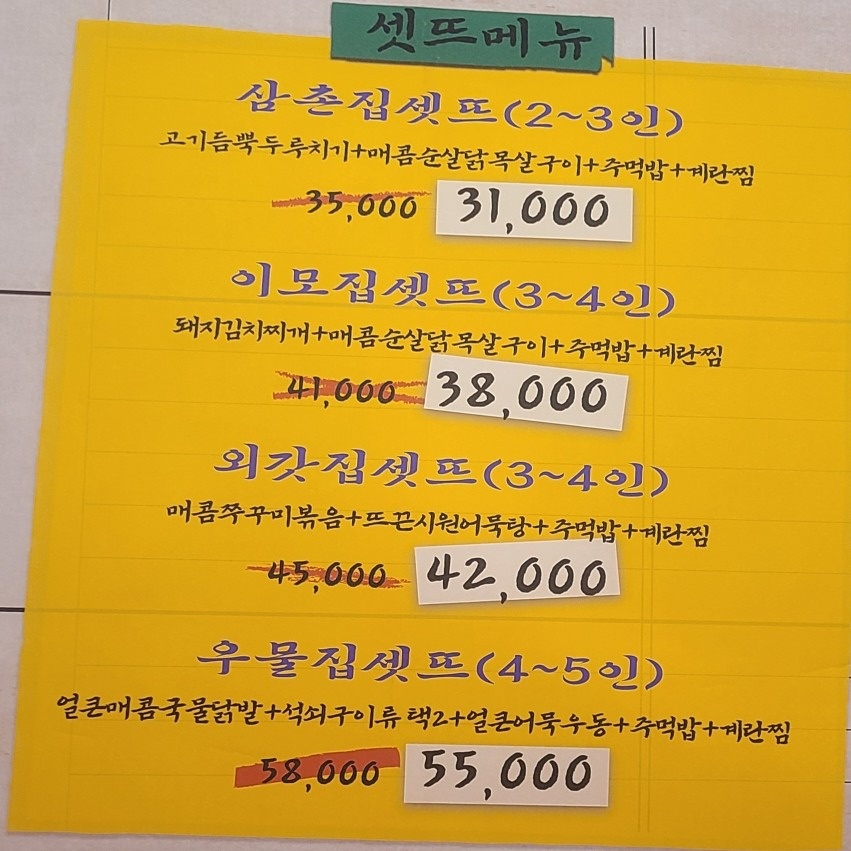 셋뜨메뉴
삼촌집셋뜨(2~3인)
고기듬뿍두루치기+매콤순살닭목살구이+주먹밥+계란찜
35,000 31,000
이모집셋뜨(3~4인)
돼지김치찌개+매콤순살닭목살구이+주먹밥+계란찜
41,000 38,000
외갓집셋뜨(3~4인)
매콤쭈꾸미볶음+뜨끈시원어묵탕+주먹밥+계란찜
45,000 42,000
우물집셋뜨(4~5인)
얼큰매콤국물닭발+석쇠구이류 택2+얼큰어묵우동+주먹밥+계란찜
58,000 55,000